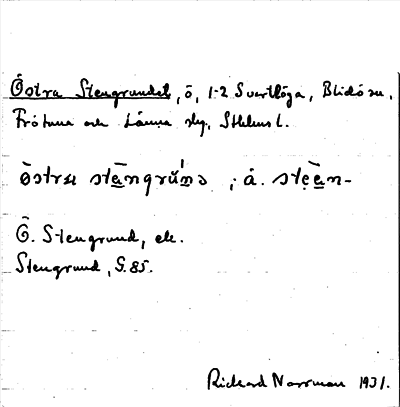 Östra Stengrundet, ö, 1-2 Svartlöga, Blidö sn,
Frötuna och Länna slg, Sthlms l.
östra stängrŭ́nə, å. steän-
Ö. Stengrund, ek.
Stengrund, G.85.
Rickard Norrman 1931.